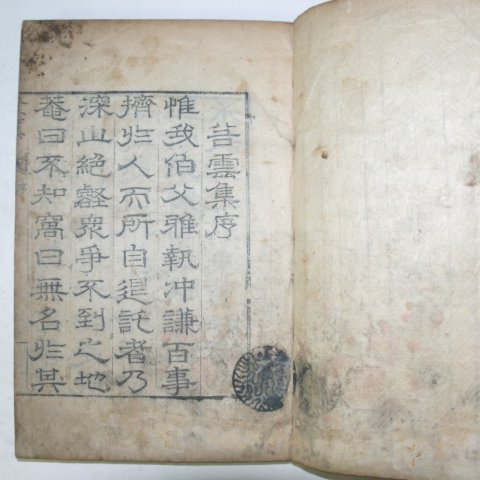 苔雲集序
惟我伯父雅執冲謙百事
擠非人而所自退託者乃
深山絶壑衆爭不到之地
菴曰不知窩曰無名非其